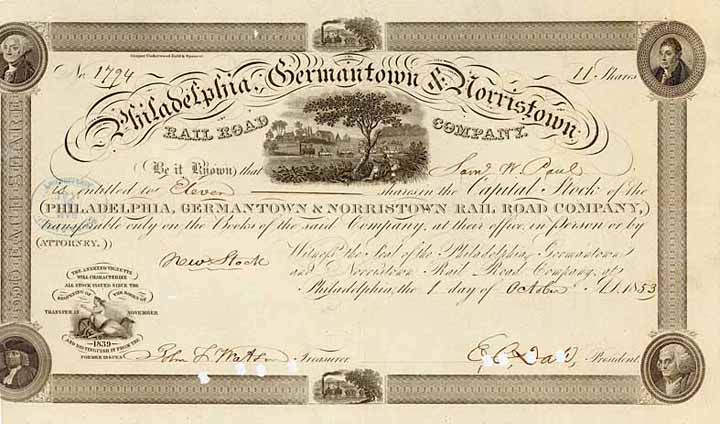 Draper Underwood Bald & Spencer
No. 1794
11 Shares
Philadelphia, Germantown & Norristown
RAIL ROAD COMPANY.
(Be it Known) that Saml W. Paul
is entitled to Eleven shares in the Capital Stock of the
(PHILADELPHIA, GERMANTOWN & NORRISTOWN RAIL ROAD COMPANY,)
transferable only on the Books of the said Company, at their office, in person or by
(ATTORNEY.)
New Stock
Witness the Seal of the Philadelphia, Germantown
and Norristown Rail Road Company, at
Philadelphia, the 1 day of October A.D. 1853
THE ANNEXED VIGNETTE
WILL CHARACTERIZE
ALL STOCK ISSUED SINCE THE
REOPENING OF THE BOOKS OF
TRANSFER IN NOVEMBER.
1839
AND DISTINGUISH IT FROM THE
FORMER ISSUES
John S Watson Treasurer.
President.
$50 EACH SHARE